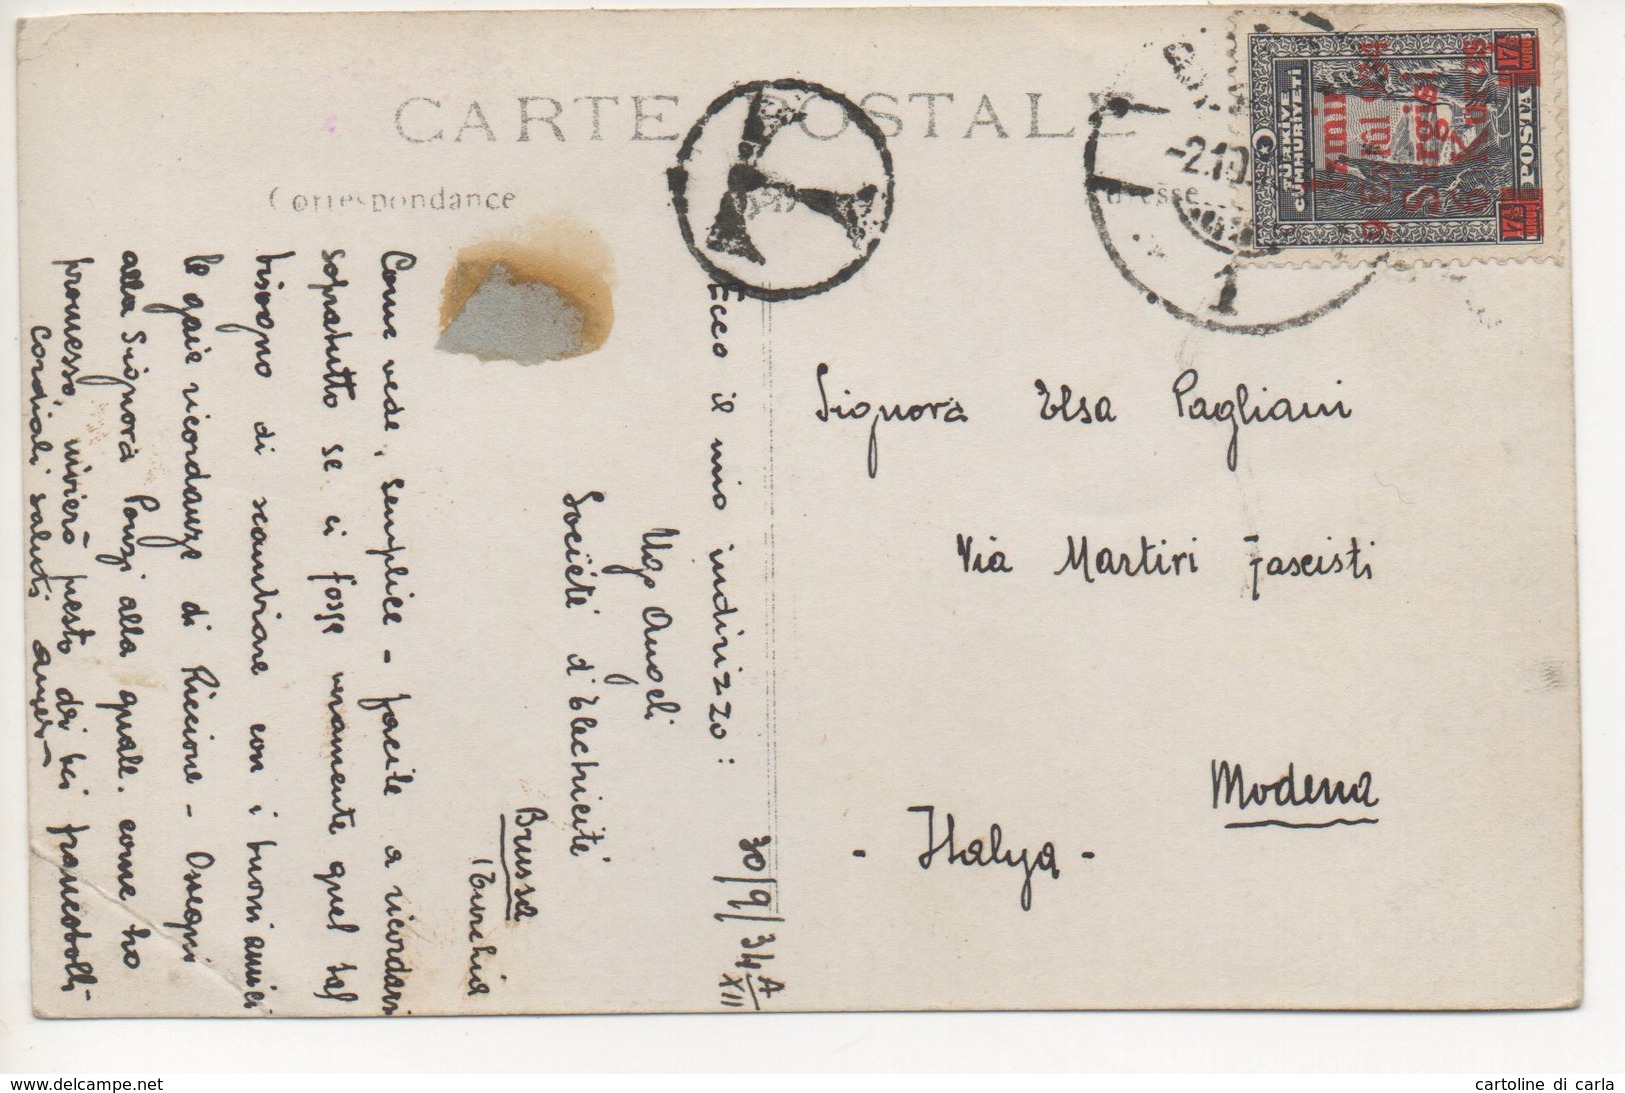 CARTE POSTALE
Correspondance
T
-2.10.
1
TÜRKİYE
CUMHURİYETİ
POSTA
İzmir
9 Eylül 934
Sergisi
2 Kuruş
Ecco il mio indirizzo:
30/9/34 A XII
Ugo Angeli
Société d'Electricité
Brussa
(Turchia
Come vede, semplice - facile a ricordarsi
sopratutto se ci fosse veramente quel tal
bisogno di scambiare con i buoni amici
le gaie ricordanze di Riccione - Ossequi
alla Signora Ponzi alla quale, come ho
promesso, invierò presto dei bei francobolli -
Cordiali saluti
Signora Elsa Pagliani
Via Martiri Fascisti
Modena
- Italya -
delcampe.net
cartoline di carla